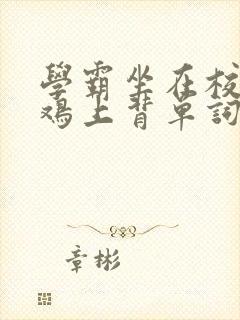 學霸坐在校
鸡上背單詞
章彬